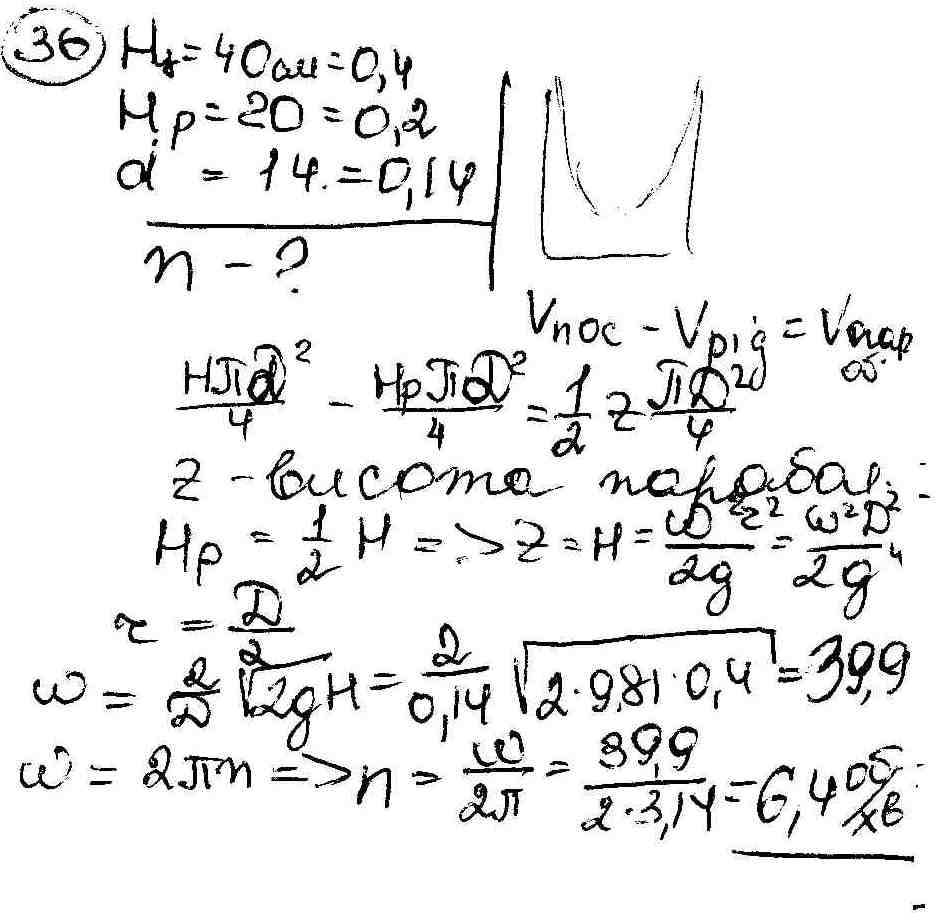 36 H₃ = 40 см = 0,4
Hр = 20 = 0,2
d = 14. = 0,14
n - ?
Vпос - Vрід = Vпар об.
HПd²/4 - HрПD²/4 = 1/2 z ПD²/4
z - висота парабол.
Hр = 1/2 H => z = H = ω²r²/2g = ω²D²/2g4
r = D/2
ω = 2/D √2gH = 2/0,14 √2·9,81·0,4 = 39,9
ω = 2πn => n = ω/2π = 39,9/2·3,14 = 6,4 об/хв